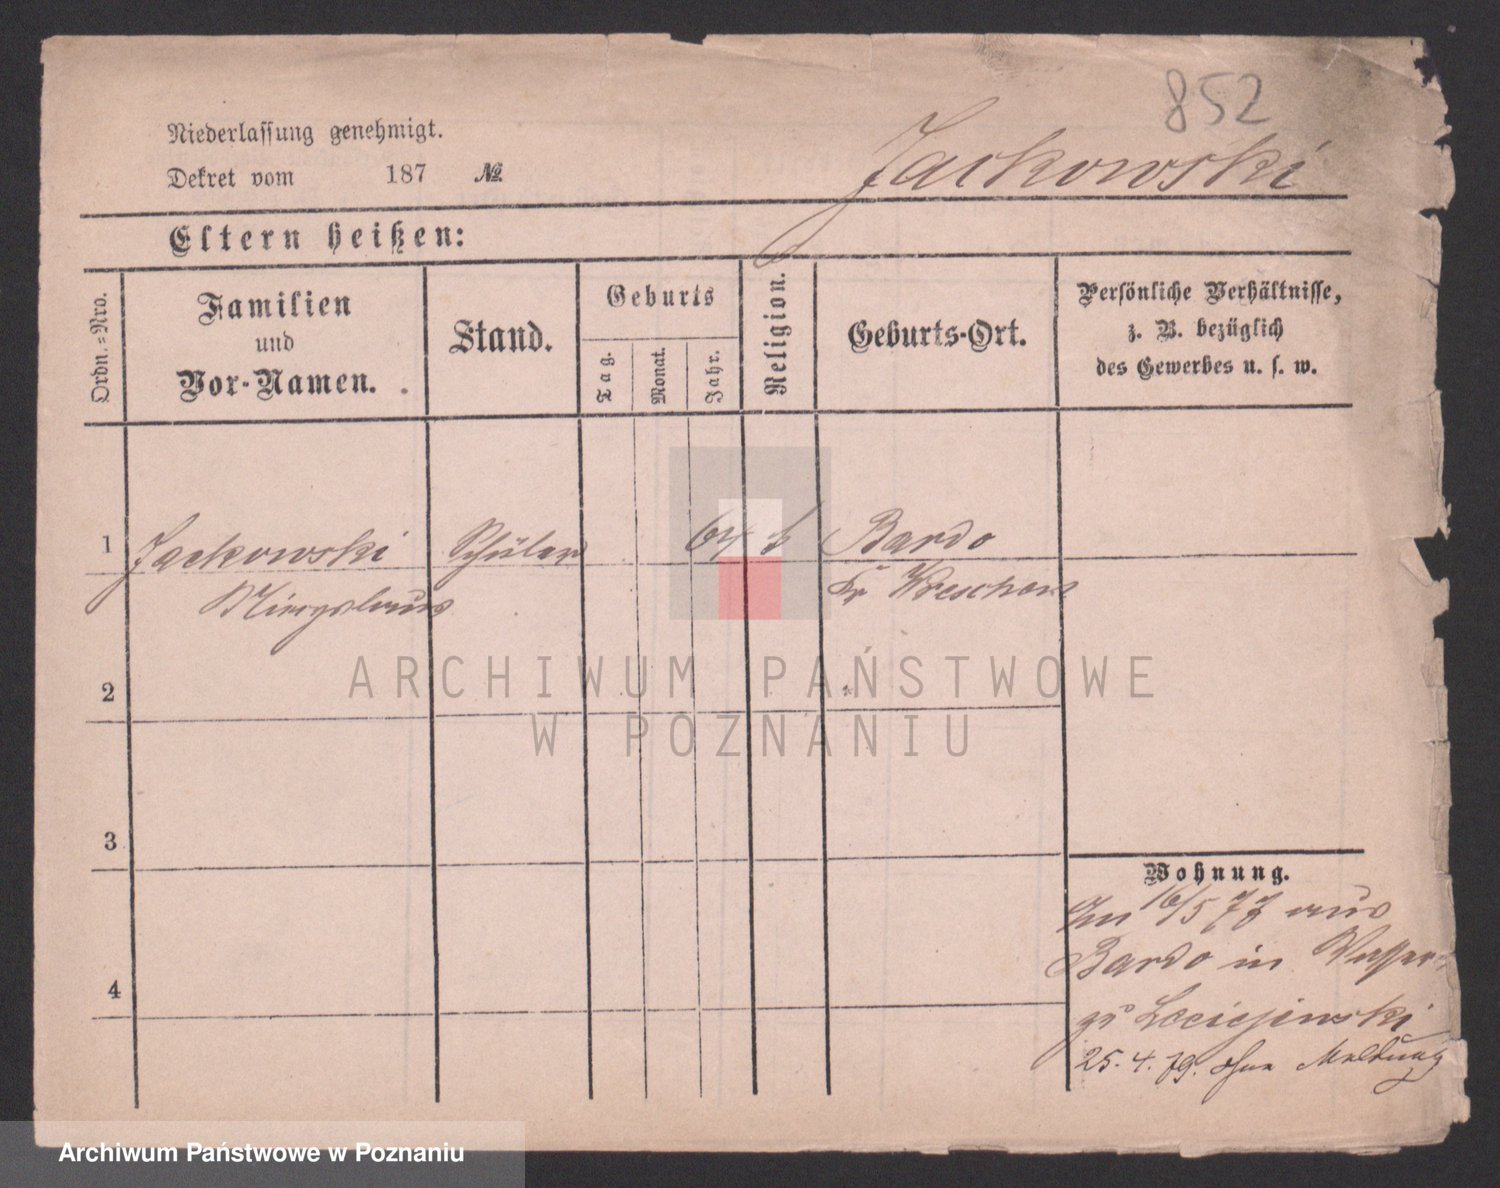 852
Niederlassung genehmigt.
Jackowski
Dekret vom 187 №.
Eltern heißen:
Ordn.=Nro.
Familien
und
Vor-Namen.
Stand.
Geburts
Tag.
Monat.
Jahr.
Religion.
Geburts-Ort.
Persönliche Verhältnisse,
z. B. bezüglich
des Gewerbes u. s. w.
1 Jackowski Schüler 64 Bardo
Kr Wreschen
2
ARCHIWUM PAŃSTWOWE
W POZNANIU
3
Wohnung.
16/5 77 aus
Bardo in
4
zu
25. 4. 79. ohne Meldung
Archiwum Państwowe w Poznaniu